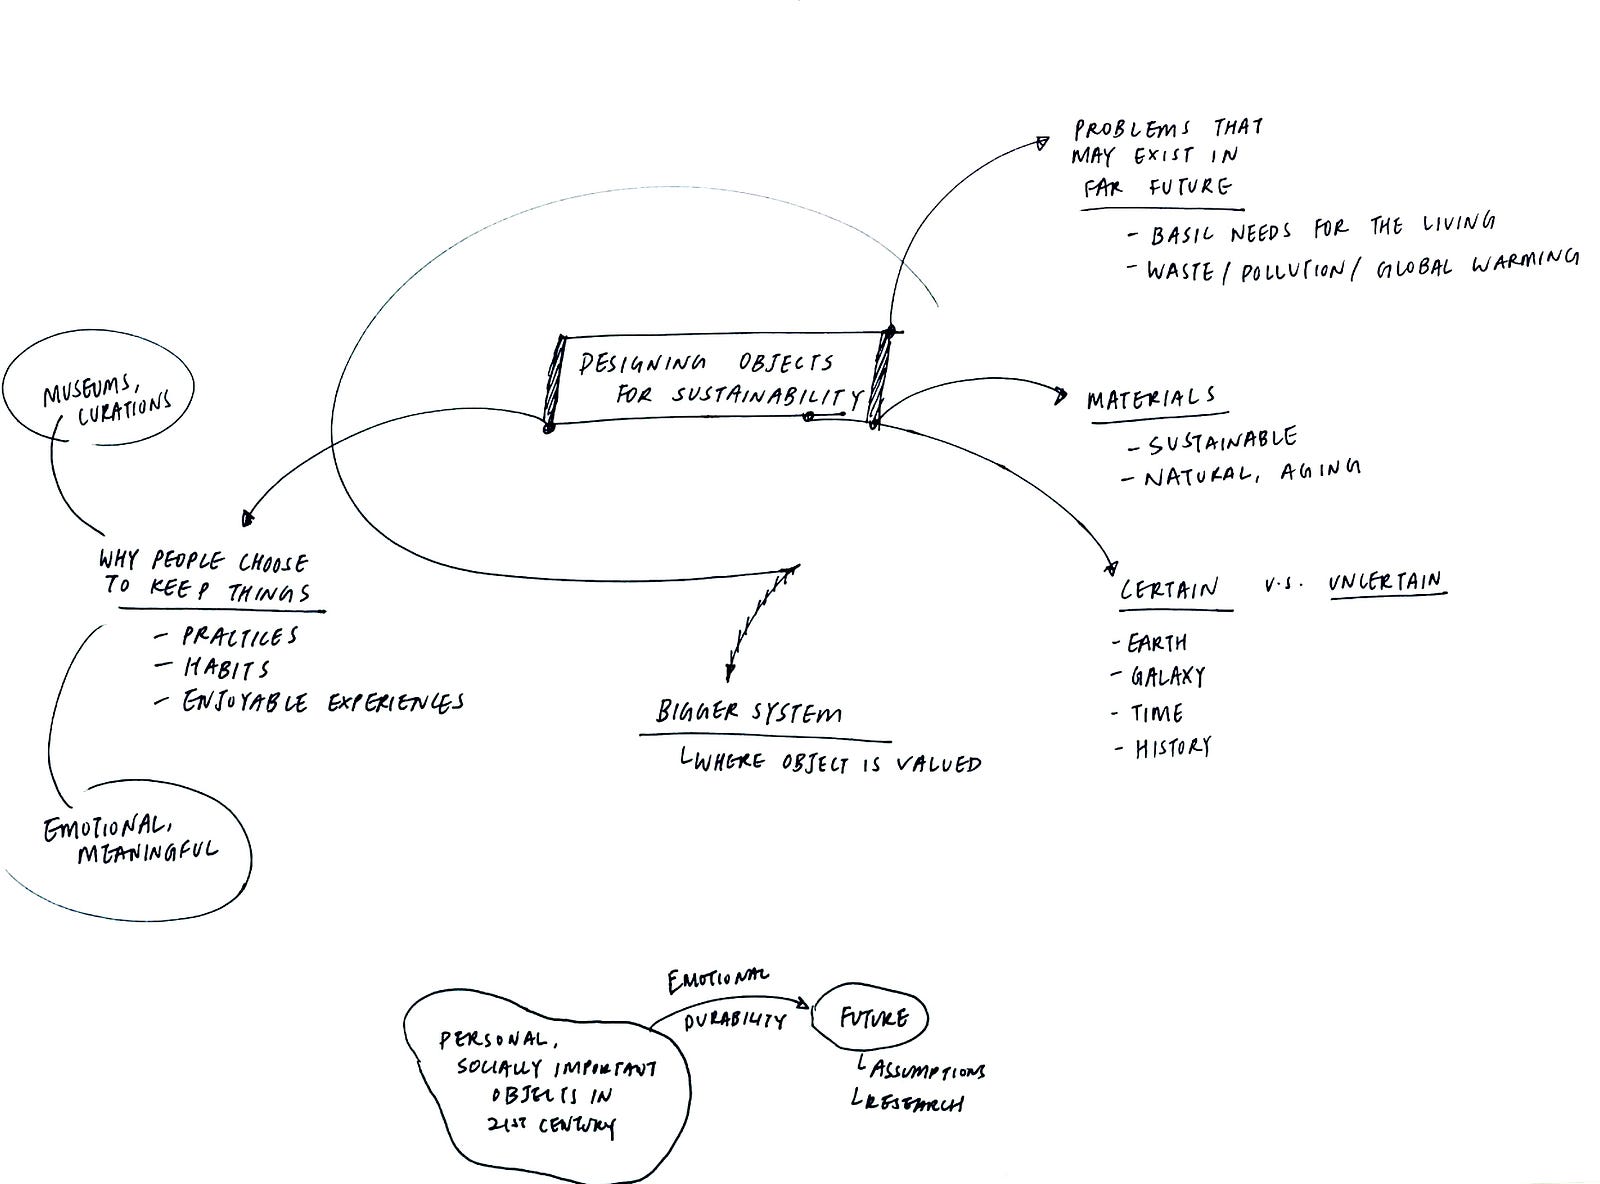 PROBLEMS THAT
MAY EXIST IN
FAR FUTURE
- BASIC NEEDS FOR THE LIVING
- WASTE / POLLUTION / GLOBAL WARMING
DESIGNING OBJECTS
FOR SUSTAINABILITY
MUSEUMS,
CURATIONS
MATERIALS
- SUSTAINABLE
- NATURAL, AGING
WHY PEOPLE CHOOSE
TO KEEP THINGS
- PRACTICES
- HABITS
- ENJOYABLE EXPERIENCES
CERTAIN V.S. UNCERTAIN
- EARTH
- GALAXY
- TIME
- HISTORY
BIGGER SYSTEM
WHERE OBJECT IS VALUED
EMOTIONAL,
MEANINGFUL
PERSONAL,
SOCIALLY IMPORTANT
OBJECTS IN
21ST CENTURY
EMOTIONAL
DURABILITY
FUTURE
ASSUMPTIONS
RESEARCH